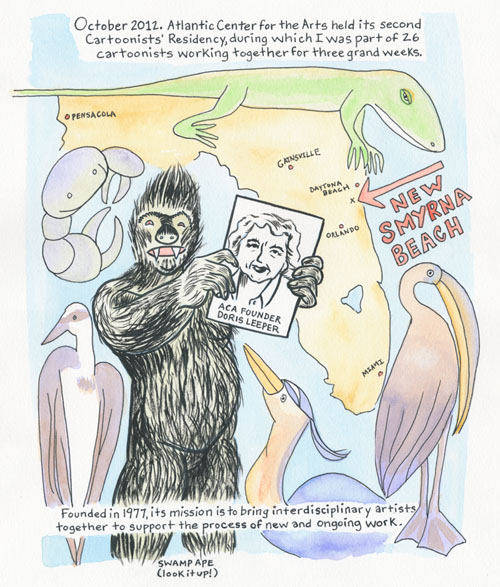 October 2012. Atlantic Center for the Arts held its second
Cartoonists' Residency, during which I was part of 26
cartoonists working together for three grand weeks.
PENSACOLA
GAINSVILLE
DAYTONA
BEACH
X
NEW
SMYRNA
BEACH
ORLANDO
ACA FOUNDER
DORIS LEEPER
MIAMI
Founded in 1977, its mission is to bring interdisciplinary artists
together to support the process of new and ongoing work.
SWAMP APE
(look it up!)